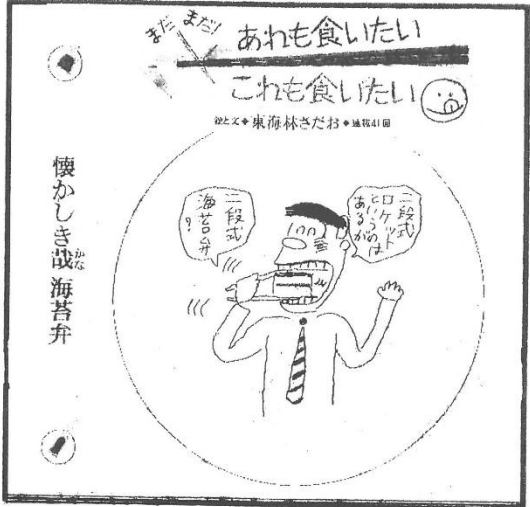 まだ まだ!
あれも食いたい
これも食いたい
絵と文◆東海林さだお◆連載41回
懐かしき哉 海苔弁
かな
二段式
ロケット
というのは
あるが
二段式
海苔弁
?